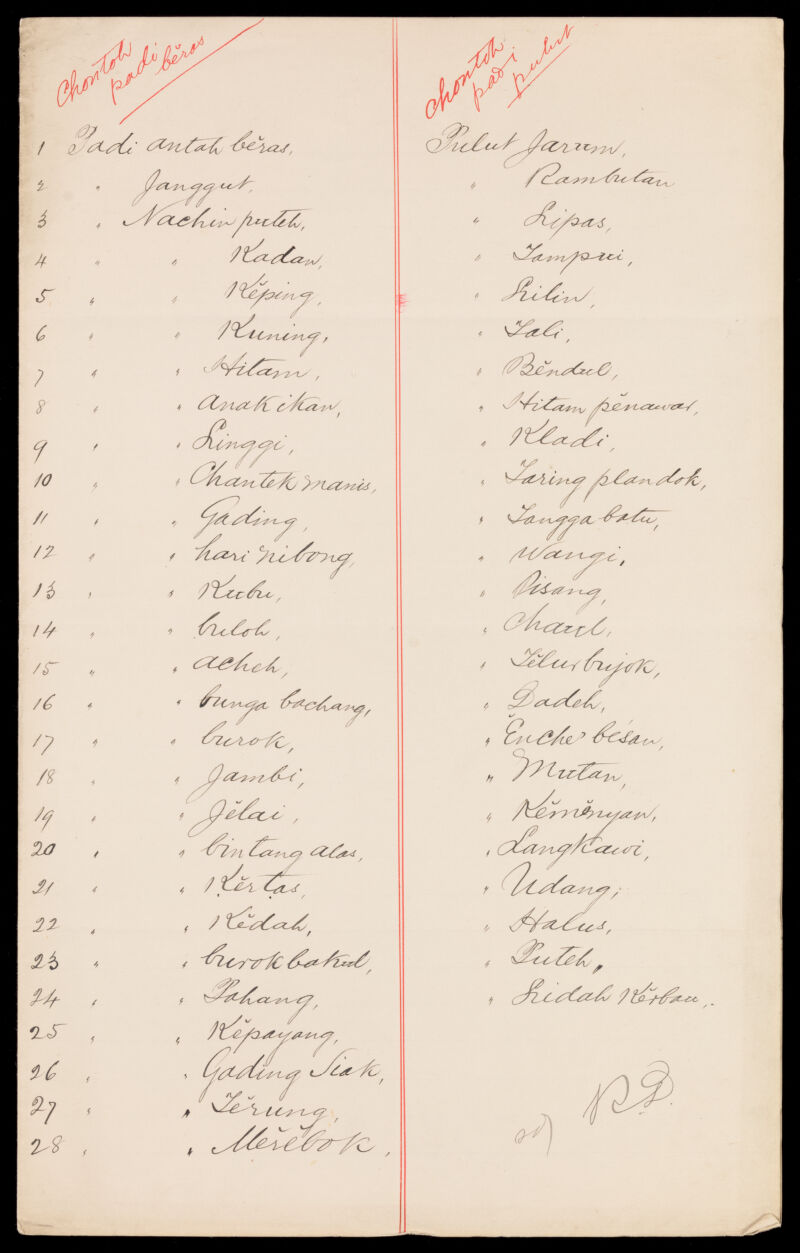 Chontoh
padi
bĕras
1 Padi antah bĕras,
2 " Janggut,
3 " Nachin puteh,
4 " " Kadan,
5 " " Kĕping,
6 " " Kuning,
7 " " Hitam,
8 " " anak ikan,
9 " " Linggi,
10 " " Chantek manis,
11 " " Gading,
12 " " hari nibong,
13 " " Kubu,
14 " " buloh,
15 " " acheh,
16 " " bunga bachang,
17 " " burok,
18 " " Jambi,
19 " " Jĕlai,
20 " " bintang alas,
21 " " Kĕrtas,
22 " " Kĕdah,
23 " " burok bakul,
24 " " Pahang,
25 " " Kĕpayang,
26 " " Gading Siak,
27 " " Tĕrung,
28 " " Mĕrĕbok,
Chontoh
padi
pulut
Pulut Jarum,
" Rambutan
" Lipas,
" Tampui,
" Lilin,
" Tali,
" Bĕndul,
" Hitam pĕnawar,
" Kladi,
" Taring plandok,
" Tangga batu,
" Wangi,
" Pisang,
" Chaul,
" Tĕlur burjok,
" Dadeh,
" Ĕnche' bĕsan,
" Mutan,
" Kĕmĕnyan,
" Langkawi,
" Udang,
" Halus,
" Puteh,
" Lidah Kĕrbau,